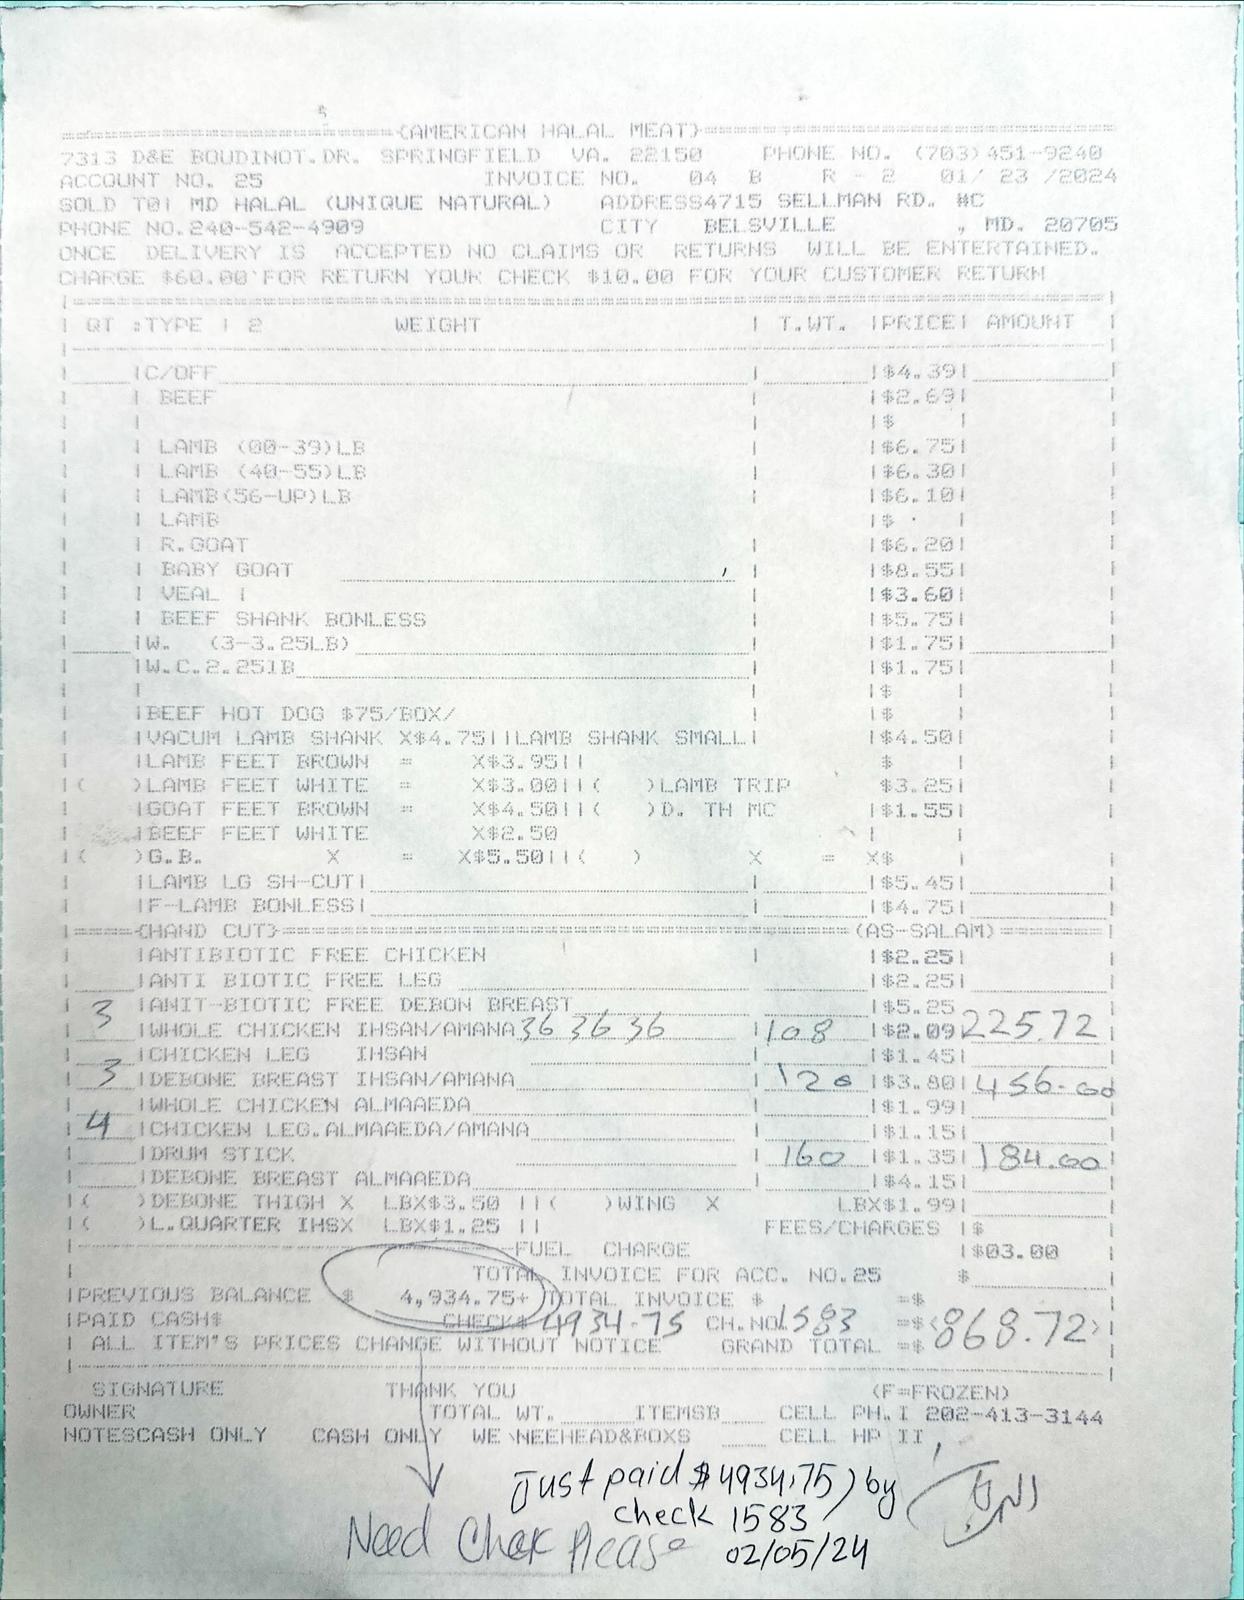 ==================={AMERICAN HALAL MEAT}=======================
7313 D&E BOUDINOT.DR. SPRINGFIELD VA. 22150 PHONE NO. (703)451-9240
ACCOUNT NO. 25 INVOICE NO. 04 B R - 2 01/ 23 /2024
SOLD TO: MD HALAL (UNIQUE NATURAL) ADDRESS4715 SELLMAN RD. #C
PHONE NO.240-542-4909 CITY BELSVILLE , MD. 20705
ONCE DELIVERY IS ACCEPTED NO CLAIMS OR RETURNS WILL BE ENTERTAINED.
CHARGE $60.00 FOR RETURN YOUR CHECK $10.00 FOR YOUR CUSTOMER RETURN
QT :TYPE | 2 WEIGHT | T.WT. |PRICE| AMOUNT |
|C/OFF |$4.39|
| BEEF |$2.69|
|$ |
| LAMB (00-39)LB |$6.75|
| LAMB (40-55)LB |$6.30|
| LAMB(56-UP)LB |$6.10|
| LAMB |$ . |
| R.GOAT |$6.20|
| BABY GOAT |$8.55|
| VEAL | |$3.60|
| BEEF SHANK BONLESS |$5.75|
|W. (3-3.25LB) |$1.75|
|W.C.2.25lB |$1.75|
|$ |
|BEEF HOT DOG $75/BOX/ |$ |
|VACUM LAMB SHANK X$4.75||LAMB SHANK SMALL| |$4.50|
|LAMB FEET BROWN = X$3.95|| $ |
|( )LAMB FEET WHITE = X$3.00||( )LAMB TRIP $3.25|
|GOAT FEET BROWN = X$4.50||( )D. TH MC |$1.55|
|BEEF FEET WHITE X$2.50 | |
|( )G.B. X = X$5.50||( ) X = X$ |
|LAMB LG SH-CUT| |$5.45|
|F-LAMB BONLESS| |$4.75|
|====={HAND CUT}=====(AS-SALAM)=======|
|ANTIBIOTIC FREE CHICKEN |$2.25|
|ANTI BIOTIC FREE LEG |$2.25|
|ANIT-BIOTIC FREE DEBON BREAST |$5.25
3 |WHOLE CHICKEN IHSAN/AMANA 36 36 36 |108 |$2.09| 225.72
|CHICKEN LEG IHSAN |$1.45|
3 |DEBONE BREAST IHSAN/AMANA | 120 |$3.80| 456.00
|WHOLE CHICKEN ALMAAEDA |$1.99|
4 |CHICKEN LEG.ALMAAEDA/AMANA |$1.15|
|DRUM STICK | 160 |$1.35| 184.00
|DEBONE BREAST ALMAAEDA |$4.15|
|( )DEBONE THIGH X LBX$3.50 ||( )WING X LBX$1.99|
|( )L.QUARTER IHSX LBX$1.25 || FEES/CHARGES |$
FUEL CHARGE |$03.00
TOTAL INVOICE FOR ACC. NO.25 $
|PREVIOUS BALANCE $ 4,934.75+ TOTAL INVOICE $ =$
|PAID CASH$ CHECK$ 4934.75 CH.NO. 1583 =$<868.72>
| ALL ITEM'S PRICES CHANGE WITHOUT NOTICE GRAND TOTAL =$
SIGNATURE THANK YOU (F=FROZEN)
OWNER TOTAL WT. ITEMSB CELL PH.I 202-413-3144
NOTESCASH ONLY CASH ONLY WE NEEHEAD&BOXS CELL HP II
Just paid $4934.75) by
check 1583
Need Chek Please 02/05/24